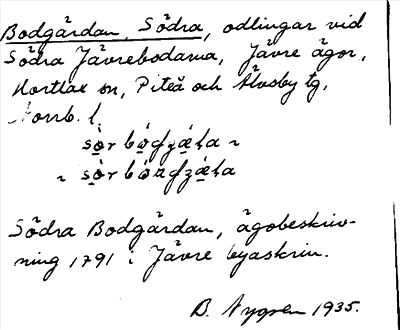 Bodgärdan, Södra, odlingar vid
Södra Jävrebodarna, Jävre ägor,
Hortlax sn, Piteå och Älvsby tg,
Norrb. l.
Södra Bodgärdan, ägobeskriv-
ning 1791 i Jävre byaskrin.
B. Nygren 1935.